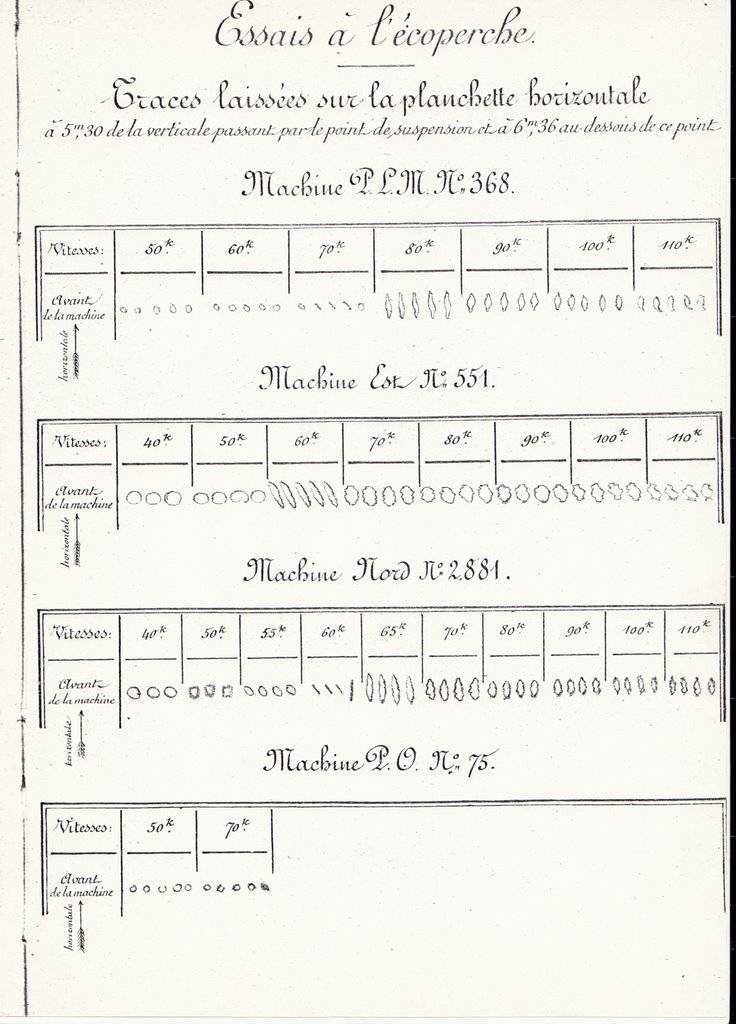 Essais à l'écoperche.
Traces laissées sur la planchette horizontale
à 5m,30 de la verticale passant par le point de suspension et à 6m,36 au-dessous de ce point
Machine P.L.M. No 368.
Vitesses: 50k. 60k. 70k. 80k. 90k. 100k. 110k.
Avant
de la machine
horizontale
Machine Est No 551.
Vitesses: 40k. 50k. 60k. 70k. 80k. 90k. 100k. 110k.
Avant
de la machine
horizontale
Machine Nord No 2.881.
Vitesses: 40k. 50k. 55k. 60k. 65k. 70k. 80k. 90k. 100k. 110k.
Avant
de la machine
horizontale
Machine P.O. No 75.
Vitesses: 50k. 70k.
Avant
de la machine
horizontale